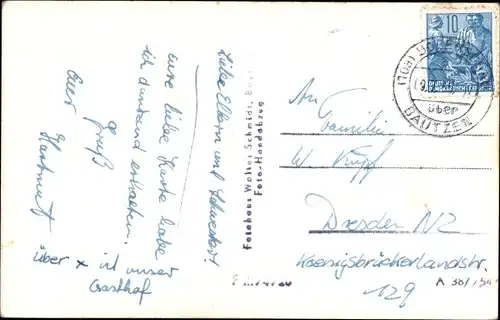 Liebe Eltern und Schwester!
eure liebe Karte habe
ich dankend erhalten.
Gruß
Euer
Hartmut
über x ist unser
Gasthof
Fotohaus Walter Schmidt,
Foto-Handabzug
An
Familie
W. Kupf
Dresden N2
Koenigsbrückerlandstr.
129
10
DEUTSCHE
DEMOKRATISCHE REPUBLIK
(10a)
über
BAUTZEN